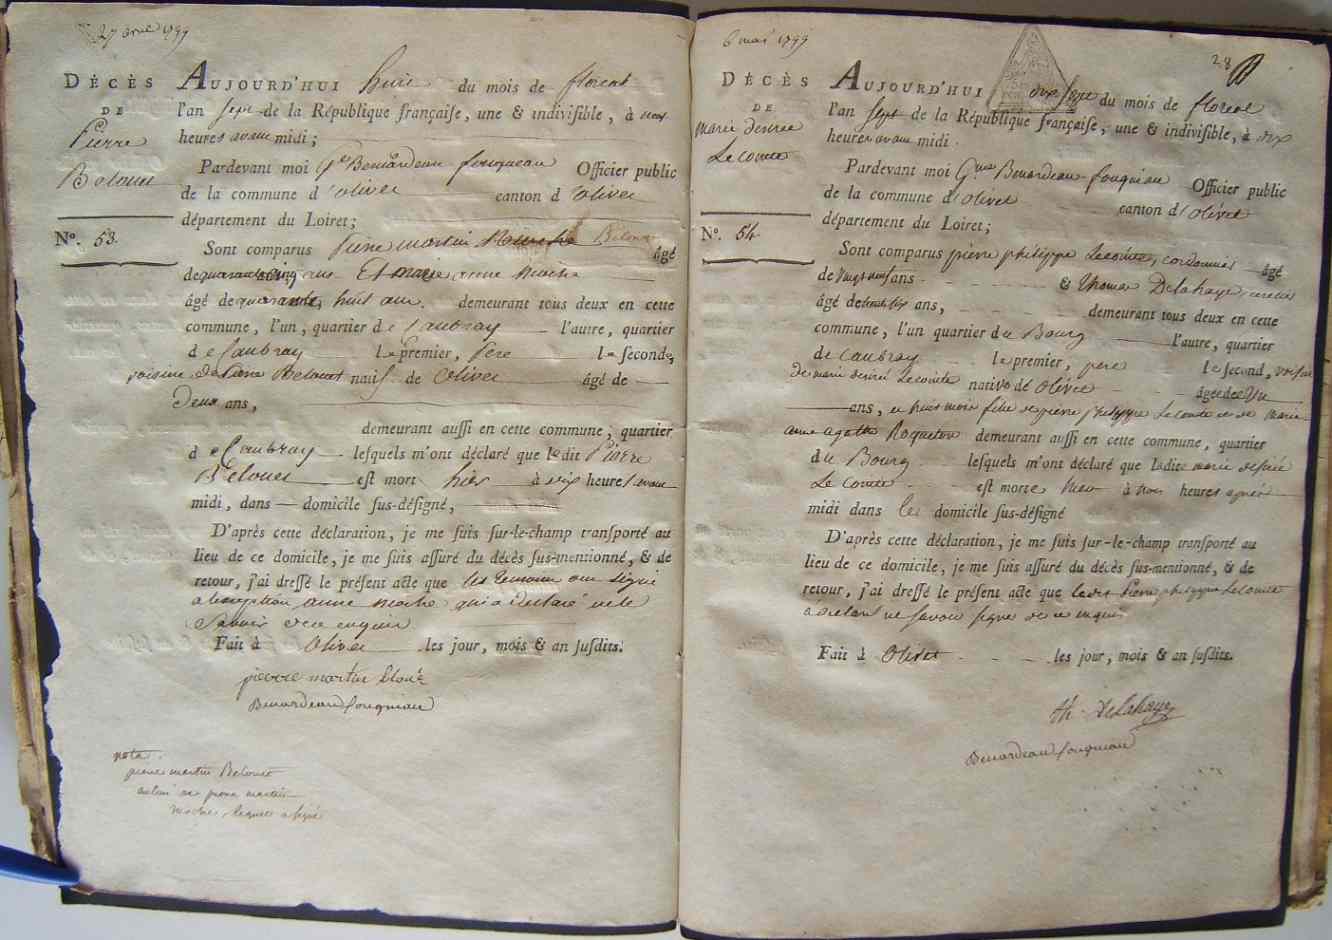 27 avril 1799
DÉCÈS
DE
Pierre
Belouet
N°. 53.
AUJOURD'HUI huit du mois de floreal
l'an sept de la République françaiſe, une & indiviſible, à neuf
heures avant midi ;
Pardevant moi Benardeau fouqueau Officier public
de la commune d'olivet canton d'olivet
département du Loiret ;
Sont comparus Pierre martin Belouet âgé
de quarante cinq ans Et marie anne
âgé de quarante huit ans. demeurant tous deux en cette
commune, l'un, quartier de Caubray l'autre, quartier
de Caubray le premier, Pere le ſeconde,
voisine de Pierre Belouet natif de Olivet âgé de
Deux ans,
demeurant auſſi en cette commune, quartier
de Caubray leſquels m'ont déclaré que ledit Pierre
Belouet est mort hier à six heures avant
midi, dans domicile ſus-déſigné,
D'après cette déclaration, je me ſuis ſur-le-champ tranſporté au
lieu de ce domicile, je me ſuis aſſuré du décès ſus-mentionné, & de
retour, j'ai dreſſé le préſent acte que les temoins ont signé
a l'exception anne qui a declaré ne le
Savoir de ce enquis
Fait à Olivet les jour, mois & an ſuſdits.
pierre martin
Benardeau fouqueau
nota.
pierre martin Belouet
au lieu de pierre martin
lequel a signé
6 mai 1799
28
DÉCÈS
DE
marie desirée
Lecomte
N°. 54.
AUJOURD'HUI dix sept du mois de floreal
l'an sept de la République françaiſe, une & indiviſible, à dix
heures avant midi.
Pardevant moi Benardeau fouqueau Officier public
de la commune d'Olivet canton d'Olivet
département du Loiret ;
Sont comparus pierre philippe Lecomte, cordonnier âgé
de vingt neuf ans & Thomas Delahaye,
âgé de ans, demeurant tous deux en cette
commune, l'un quartier du Bourg l'autre, quartier
de Caubray le premier, pere le ſecond, voisin
de marie desirée Lecomte native de Olivet âgée de Un
ans, et huit mois fille de pierre philippe Lecomte et de marie
anne agathe Roqueton demeurant auſſi en cette commune, quartier
du Bourg leſquels m'ont déclaré que ladite marie desirée
Le Comte est morte hier à trois heures après
midi dans les domicile ſus-déſigné
D'après cette déclaration, je me ſuis ſur-le-champ tranſporté au
lieu de ce domicile, je me ſuis aſſuré du décès ſus-mentionné, & de
retour, j'ai dreſſé le préſent acte que ledit Pierre philippe Lecomte
a declaré ne savoir signe de ce enquis
Fait à Olivet les jour, mois & an ſuſdits.
th. Delahaye
Benardeau fouqueau